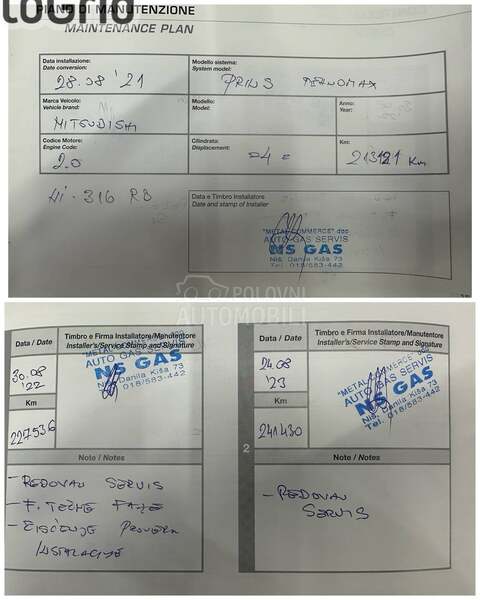 PIANO DI MANUTENZIONE
MAINTENANCE PLAN
Data installazione:
Date conversion:
28.08 '21
Modello sistema:
System model:
PRINS
Marca Veicolo:
Vehicle brand:
MITSUBISHI
Modello:
Model:
Anno:
Year:
Codice Motore:
Engine Code:
2.0
Cilindrata:
Displacement:
-4-
Km:
213121 Km
NI-316 RB
Data e Timbro Installatore
Date and stamp of Installer
"METAL COMMERCE" doo
AUTO GAS SERVIS
NS GAS
Niš, Danila Kiša 73
Tel. 018/583-442
POLOVNI
AUTOMOBILI
Data / Date
Timbro e Firma Installatore/Manutentore
Installer's/Service Stamp and Signature
30.08
'22
AUTO GAS SERVIS
NS GAS
Niš, Danila Kiša 73
Tel. 018/583-442
Km
227536
Note / Notes
- REDOVAN SERVIS
- F. TEČNE FAZE
- ČIŠĆENJE PROVERA
INSTALACIJE
Data / Date
Timbro e Firma Installatore/Manutentore
Installer's/Service Stamp and Signature
24.08
'23
"METAL COMMERCE" doo
AUTO GAS SERVIS
NS GAS
Niš, Danila Kiša 73
Tel. 018/583-442
Km
241430
2
Note / Notes
- REDOVAN
SERVIS